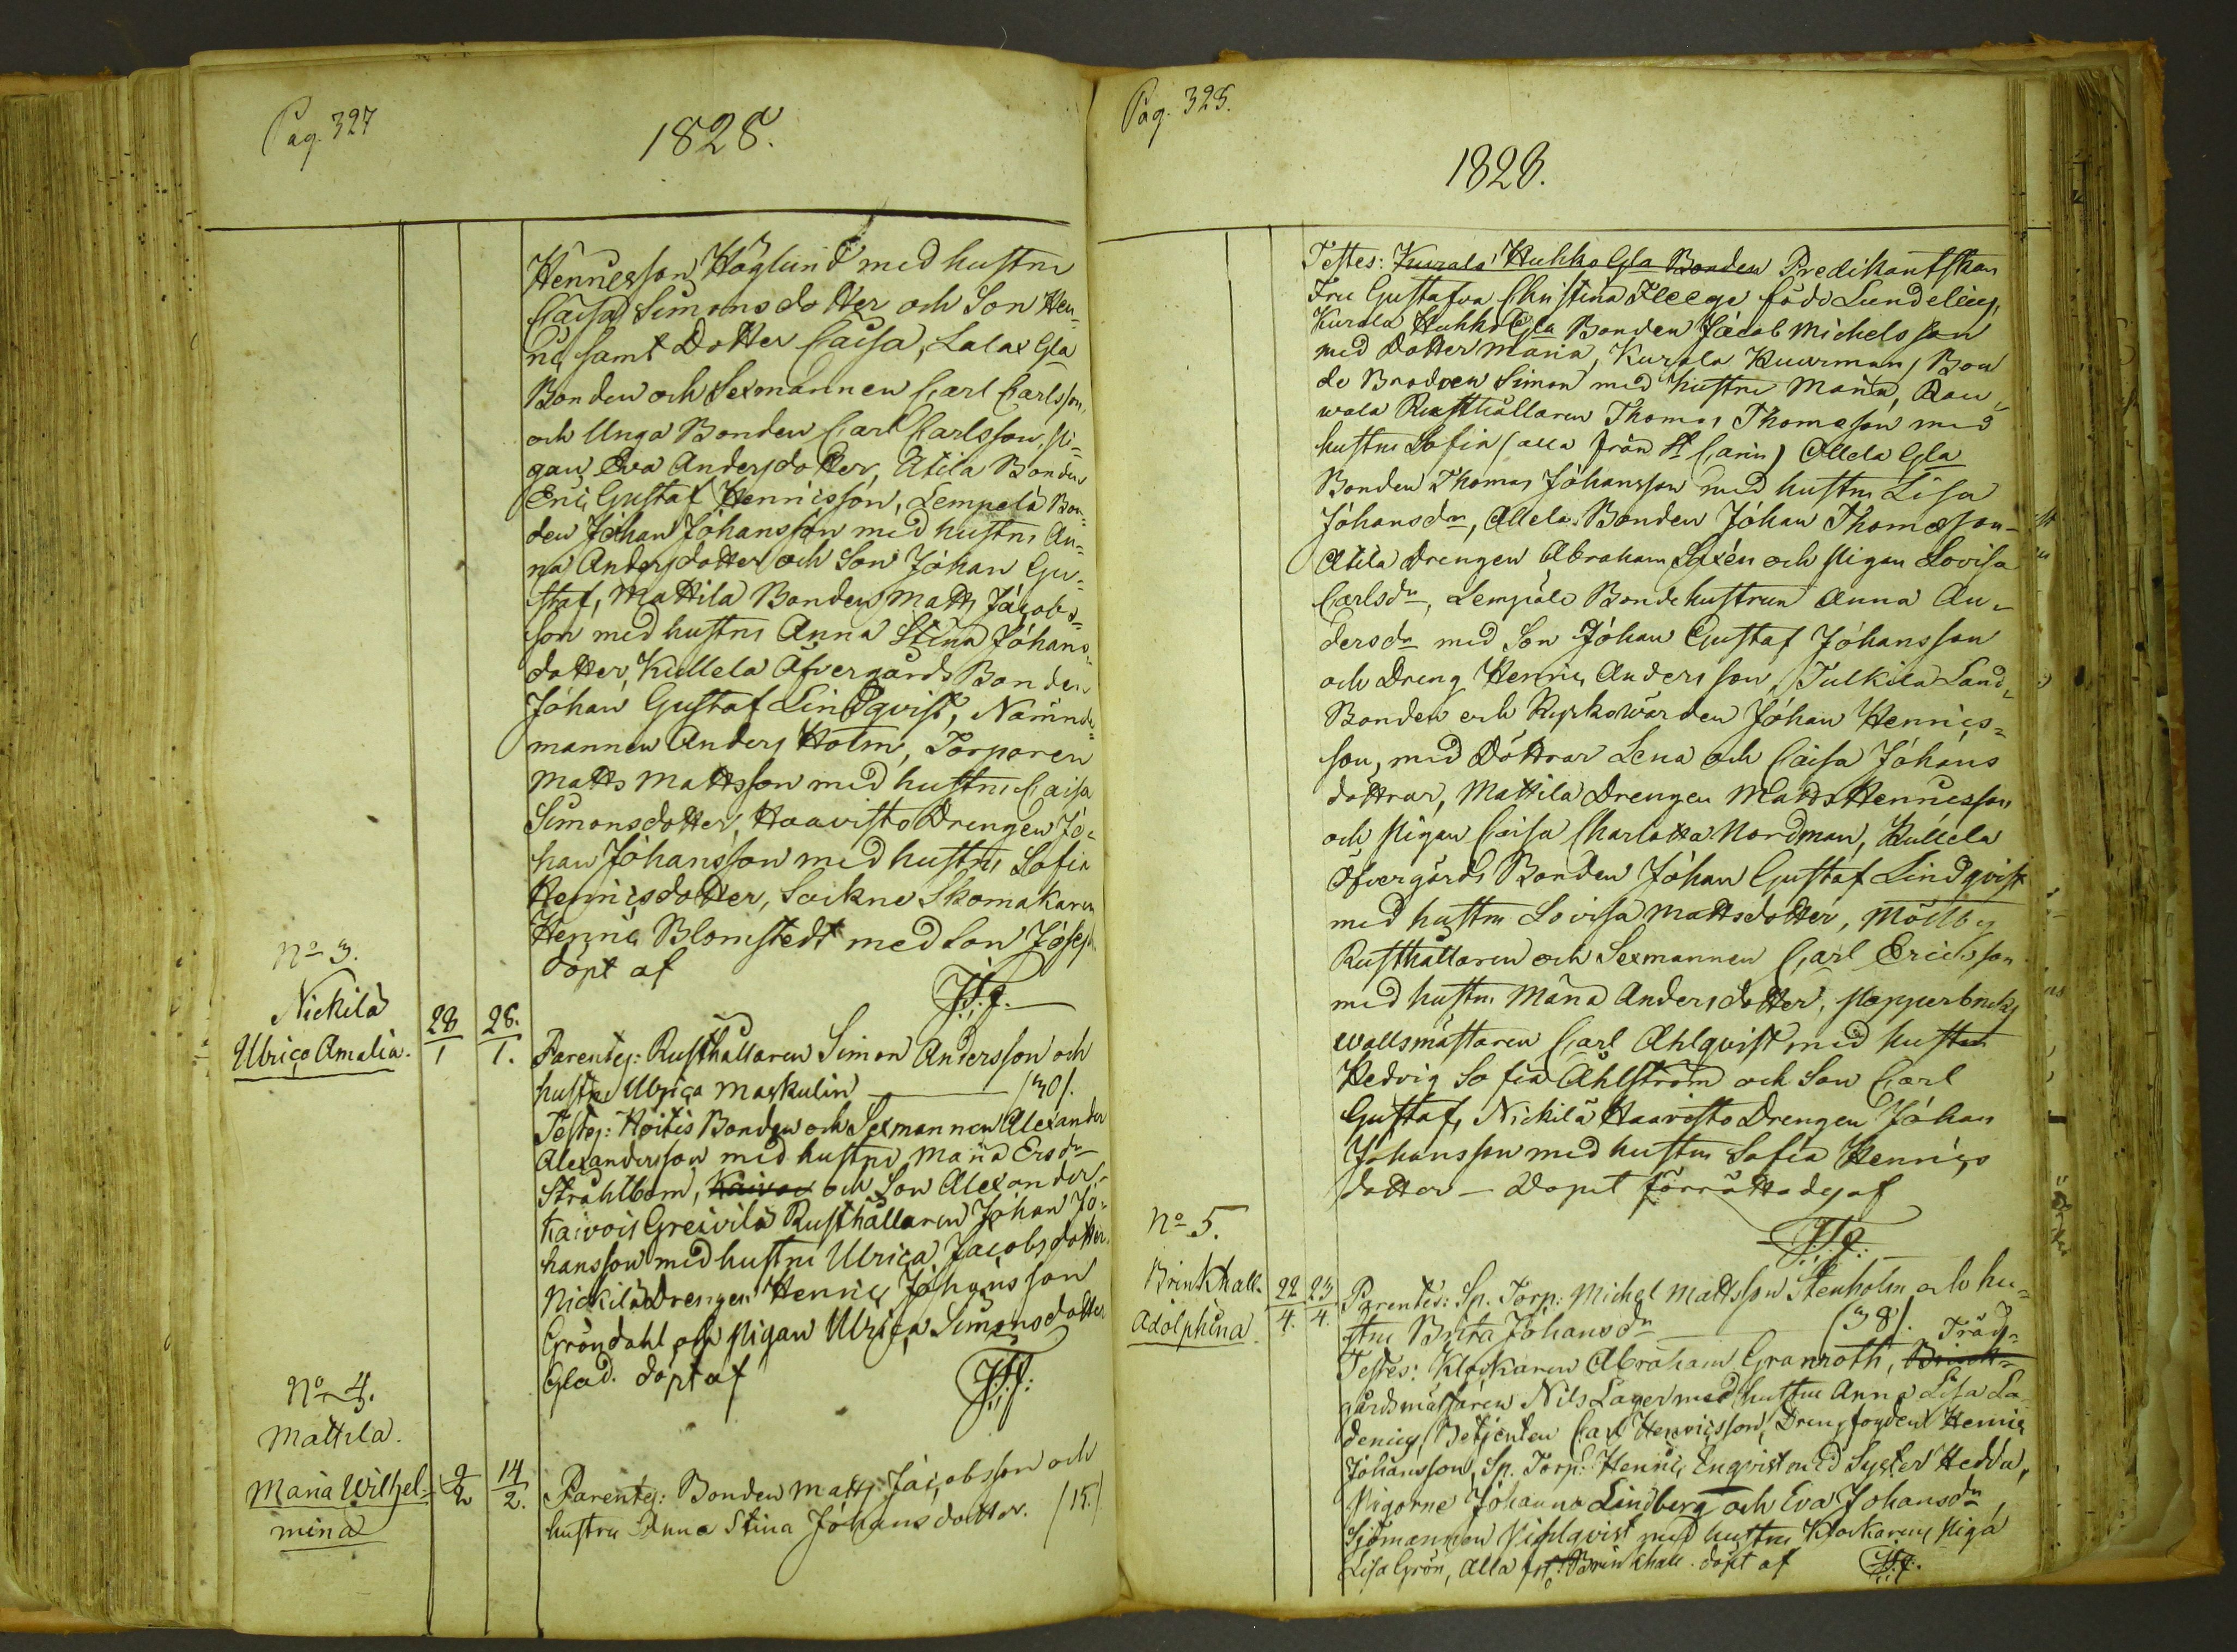 Pag. 327
1828.
Henricsson Höglund med hustru
Caisa Simonsdotter och Son Hen=
ric samt Dotter Caisa, Lalax Gla
Bonden och Sexmannen Carl Carlsson,
och Unga Bonden Carl Carlsson, Pi=
gan Eva Andersdotter, Atila Bonden
Eric Gustaf Henricsson, Lempelä Bon=
den Johan Johansson med hustru An=
na Andersdotter och Son Johan Gu=
staf, Mattila Bonden Matts Jacobs=
son med hustru Anna Stina Johans=
dotter, Kullela Öfvergårds Bonden
Johan Gustaf Lindqvist, Nämnde=
mannen Anders Holm, Torparen
Matts Mattsson med hustru Caisa
Simonsdotter, Haavisto Drengen Jo=
han Johansson med hustru Sofia
Henricsdotter, Sockne Skomakaren
Henric Blomstedt med Son Joseph
döpt af
No 3.
Nickilä
Ulrica Amalia.
28/1
28./1.
Parentes: Rusthållaren Simon Andersson och
hustru Ulrica Maskulin (30).
Testes: Hoitis Bonden och Sexmannen Alexander
Alexandersson med hustru Maria Ersdr
Stråhlbom, Kaivois och Son Alexander.
Kaivois Greivilä Rusthållaren Johan Jo=
hansson med hustru Ulrica Jacobsdotter.
Nickilä Drengen Henric Johansson
Gröndahl och Pigan Ulrica Simonsdotter
Glad. döpt af
No 4.
Mattila.
Maria Wilhel=
mina
9/2
14/2.
Parentes: Bonden Matts Jacobsson och
hustru Anna Stina Johansdotter. (15.)
Pag. 328.
1828.
Testes: Kurala Huhko Gla Bonden Predikantskan
Fru Gustafva Christina Fleege född Lundelius,
Kurala Huhko Gla Bonden Jacob Michelsson
med Dotter Maria, Kurala Kuurman, Bon
de Brodren Simon med hustru Maria, Rau=
wola Rusthållaren Thomas Thomasson med
hustru Sofia (alla från St Carins) Ollela Gla
Bonden Thomas Johansson med hustru Lisa
Johansdr, Allela Bonden Johan Thomasson
Atila Drengen Abraham Saxén och Pigan Lovisa
Carlsdr, Lempälä Bondehustrun Anna An=
dersdr med Son Johan Gustaf Johansson
och Dreng Henric Andersson, Tulkila Land=
Bonden och Kyrkowärden Johan Henrics=
son, med Döttrar Lena och Caisa Johans
döttrar, Mattila Drengen Matts Henricsson
och Pigan Caisa Charlotta Nordman, Kullela
Öfvergårds Bonden Johan Gustaf Lindqvist
med hustru Lovisa Mattsdotter, Möllby
Rusthållaren och Sexmannen Carl Ericsson
med hustru Maria Andersdotter, Papperbruks
wallsmästaren Carl Ahlqvist med hustru
Hedvig Sofia Åhlström och Son Carl
Gustaf, Nickilä Haavisto Drengen Johan
Johansson med hustru Sofia Henrics
dotter – Dopet förrättades af
No 5.
Brinkhall.
Adolphina
22/4.
23/4.
Parentes: Sp. Torp: Michel Mattsson Stenholm och hu=
stru Brita Johansdr (38).
Testes: Klockaren Abraham Granroth, Brink= Träd=
gårdsmästaren Nils Lager med hustru Anna Lisa La
denius, Betjenten Carl Henricsson, Drengfogden Henric
Johansson, Sp. Torp: Henric Enqvist med Syster Hedda,
Pigorne Johanna Lindberg och Eva Johansdr,
Sjömannen Vihlqvist med hustru Klockarens Piga
Lisa Grön, alla fr. Brinkhall. döpt af